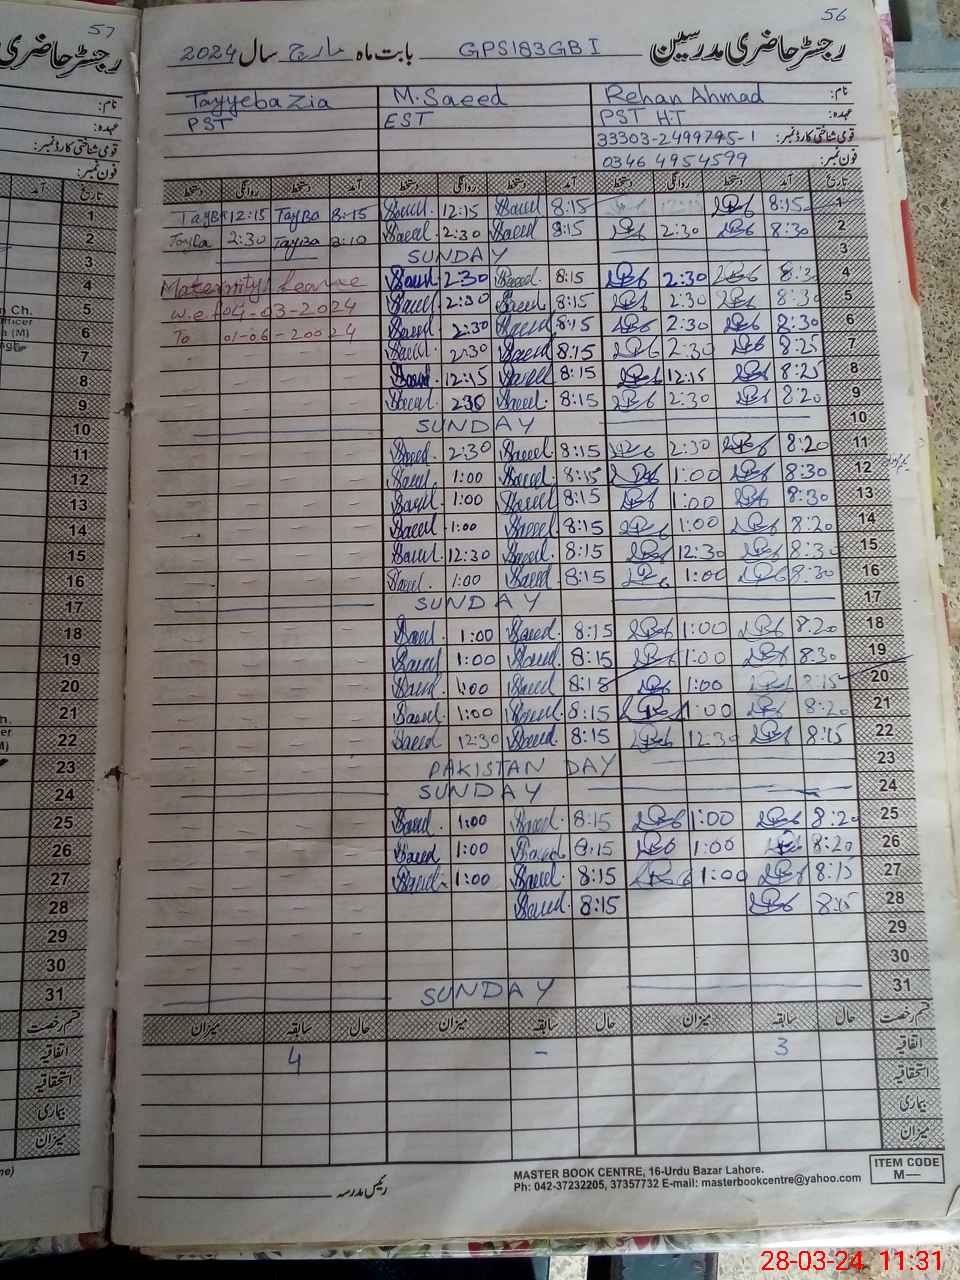 57
56
رجسٹر حاضری مدرسین GPS183GB I بابت ماہ مارچ سال 2024
نام: Rehan Ahmad M. Saeed Tayyeba Zia
عہدہ: PST H.T EST PST
قومی شناختی کارڈ نمبر: 33303-2499795-1
فون نمبر: 0346 4954599
تاریخ آمد دستخط روانگی دستخط آمد دستخط روانگی دستخط آمد دستخط روانگی دستخط
1 8:15 8:15 Saeed 12:15 Saeed 8:15 Tayba 12:15 Tayba
2 8:30 2:30 8:15 Saeed 2:30 Saeed 8:10 Tayba 2:30 Tayba
3 SUNDAY
4 2:30 8:15 Saeed 2:30 Saeed Maternity Leave
5 8:30 2:30 8:15 Saeed 2:30 Saeed w.e.f 04-03-2024
6 8:30 2:30 8:15 Saeed 2:30 Saeed To 01-06-20024
7 8:25 2:30 8:15 Saeed 2:30 Saeed
8 8:25 12:15 8:15 Saeed 12:15 Saeed
9 8:20 2:30 8:15 Saeed 2:30 Saeed
10 SUNDAY
11 8:20 2:30 8:15 Saeed 2:30 Saeed
12 8:30 1:00 8:15 Saeed 1:00 Saeed
13 8:30 1:00 8:15 Saeed 1:00 Saeed
14 8:20 1:00 8:15 Saeed 1:00 Saeed
15 8:30 12:30 8:15 Saeed 12:30 Saeed
16 8:30 1:00 8:15 Saeed 1:00 Saeed
17 SUNDAY
18 8:20 1:00 8:15 Saeed 1:00 Saeed
19 8:30 1:00 8:15 Saeed 1:00 Saeed
20 8:15 1:00 8:15 Saeed 1:00 Saeed
21 8:20 1:00 8:15 Saeed 1:00 Saeed
22 8:15 12:30 8:15 Saeed 12:30 Saeed
23 PAKISTAN DAY
24 SUNDAY
25 8:20 1:00 8:15 Saeed 1:00 Saeed
26 8:20 1:00 8:15 Saeed 1:00 Saeed
27 8:15 1:00 8:15 Saeed 1:00 Saeed
28 8:15 8:15 Saeed
29
30
31 SUNDAY
قسم رخصت حال سابقہ میزان حال سابقہ میزان حال سابقہ میزان
اتفاقیہ 3 - 4
استحقاقیہ
بیماری
میزان
رئیس مدرسہ
MASTER BOOK CENTRE, 16-Urdu Bazar Lahore.
Ph: 042-37232205, 37357732 E-mail: masterbookcentre@yahoo.com
ITEM CODE
M—
28-03-24 11:31